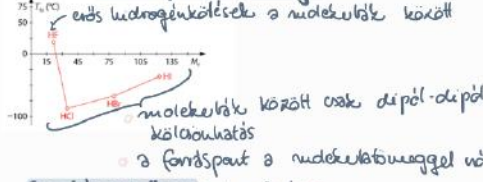 75 T_f (°C)
erős hidrogénkötések a molekulák között
50
HF
0
15 45 75 105 135 M_r
HI
HBr
HCl
-100
molekulák között csak dipól-dipól
kölcsönhatás
a forráspont a molekulatömeggel nő